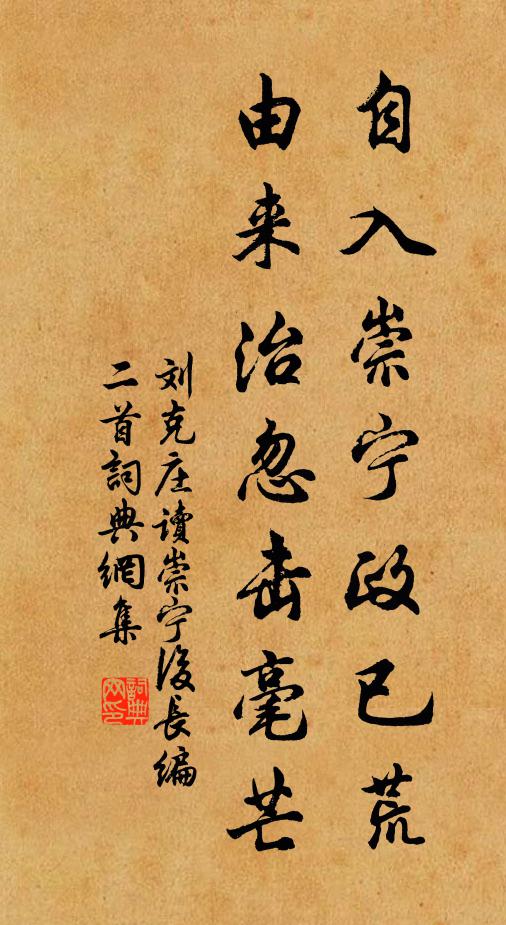 自入崇宁政已荒
由来治忽击毫芒
刘克庄读崇宁後长编
二首词典网集
詞典
网印